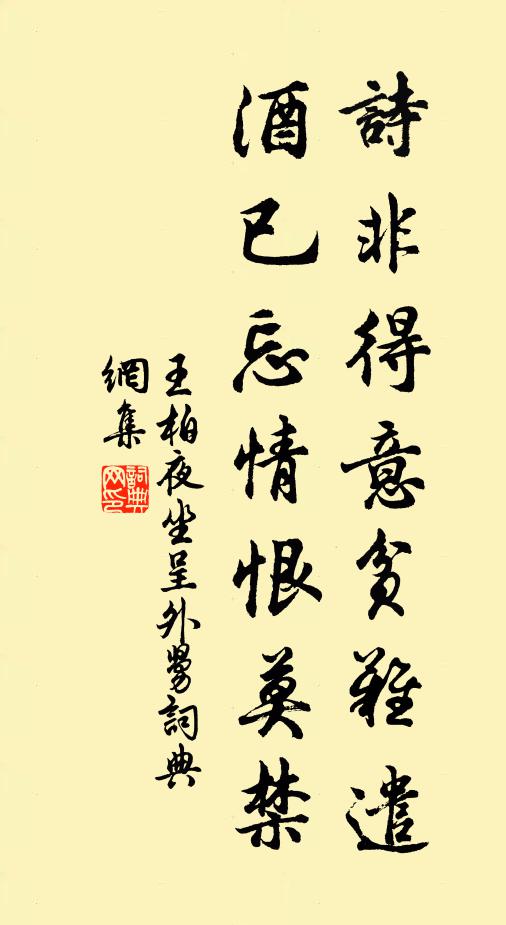 詩非得意貧難遣
酒已忘情恨莫禁
王柏夜坐呈外舅詞典
網集
詞典網印